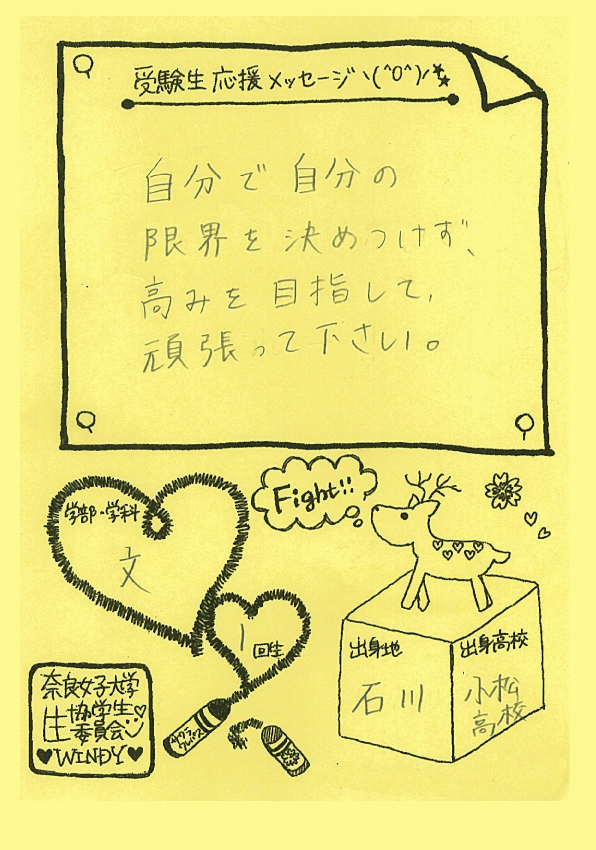 受験生応援メッセージヽ(^0^)ﾉ
自分で自分の
限界を決めつけず、
高みを目指して、
頑張って下さい。
Fight!!
学部・学科
文
1回生
出身地
石川
出身高校
小松
高校
奈良女子大学
生協学生
委員会
♥WINDY♥
サクラ
クレパス